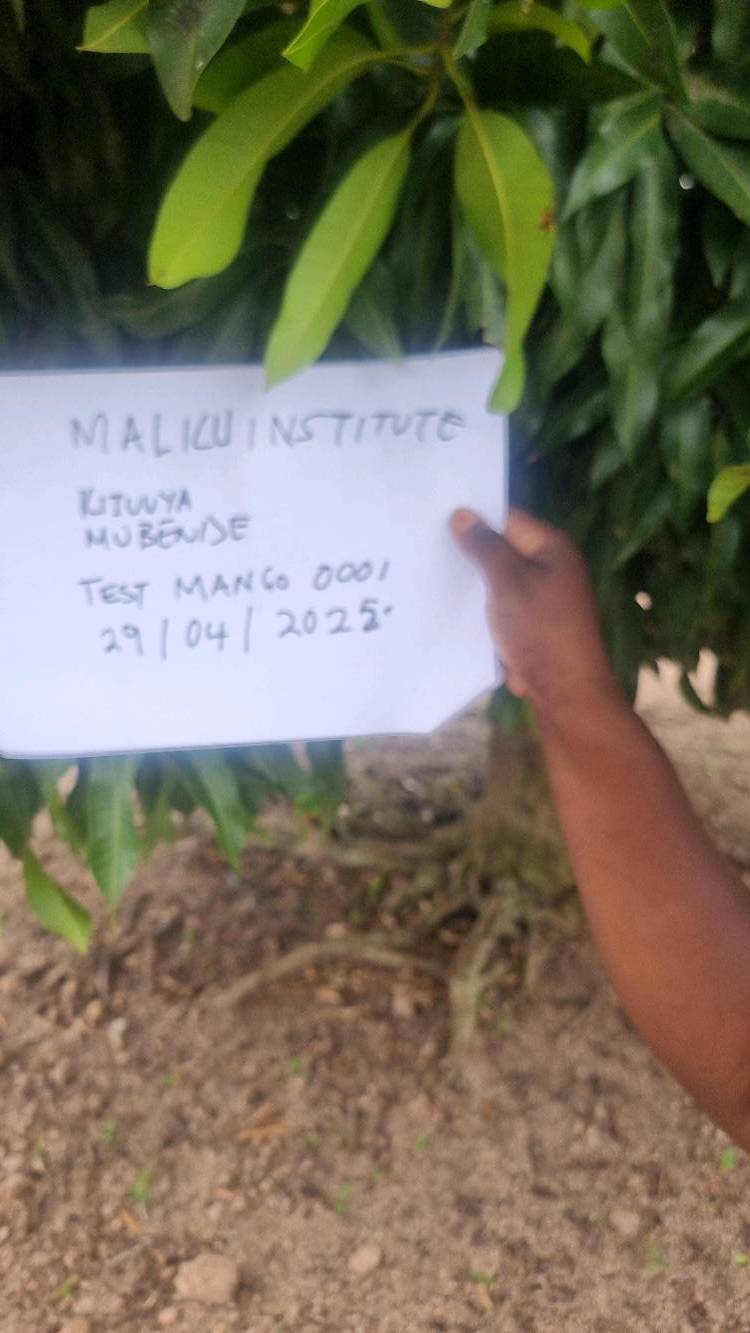 MALIKU INSTITUTE
KITUUYA
MUBENDE
TEST MANGO 0001
29/04/2025.